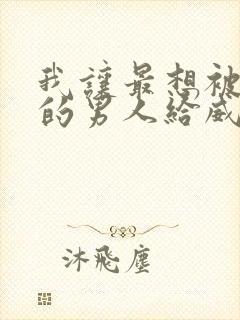 我讓最想被
的男人給威
沐飛塵